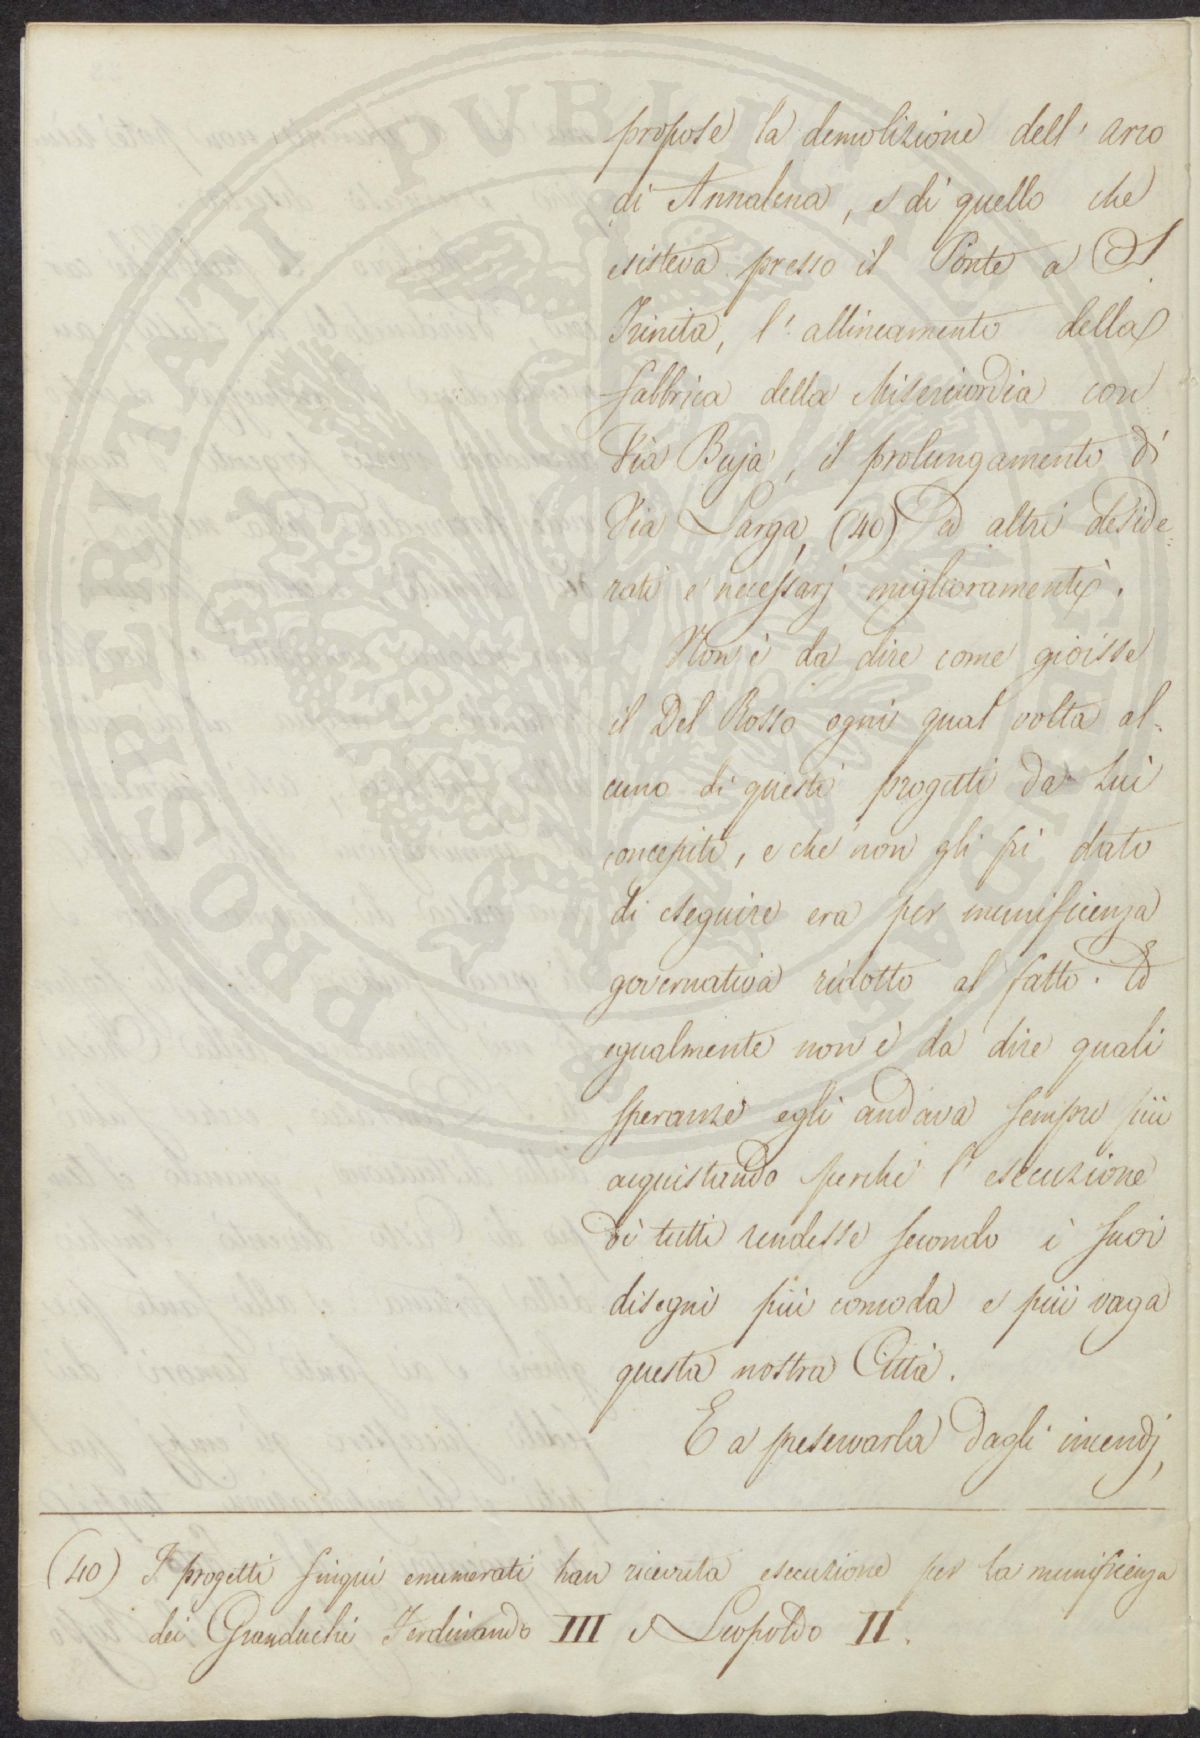 propose la demolizione dell' arco
di Annalena, e di quello che
esisteva presso il Ponte a S.
Trinita, l' allineamento della
fabbrica della Misericordia con
Via Buja, il prolungamento di
Via Larga, (40) ed altri deside=
rati e necessarj miglioramenti.
Non è da dire come gioisse
il Del Rosso ogni qual volta al-
cuno di questi progetti da Lui
concepiti, e che non gli fù dato
di eseguire era per munificenza
governativa ridotto al fatto. Ed
egualmente non è da dire quali
speranze egli andava sempre più
acquistando perchè l' esecuzione
di tutti rendesse secondo i suoi
disegni più comoda e più vaga
questa nostra Città.
E a preservarla dagli incendj,
(40) I progetti finquì enumerati han ricevuta esecuzione per la munificenza
dei Granduchi Ferdinando III e Leopoldo II.
PROSPERITATI PUBLICAE AUGENDAE